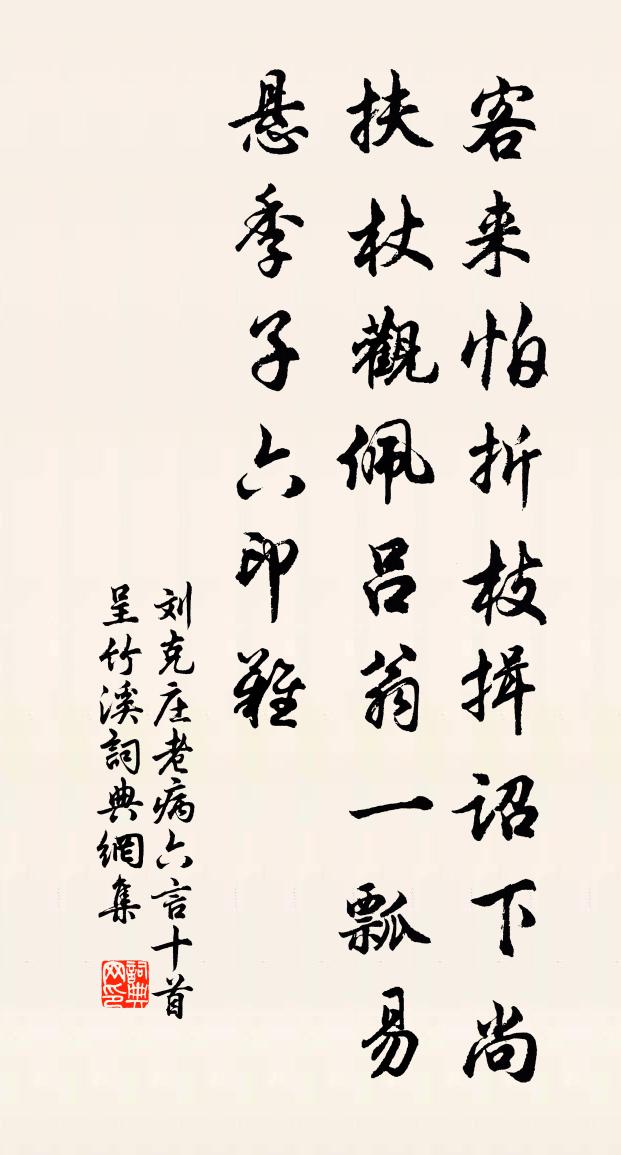 客来怕折枝揖诏下尚
扶杖觀佩呂翁一瓢易
懸季子六印難
刘克庄老病六言十首
呈竹溪詞典網集
詞典
网印